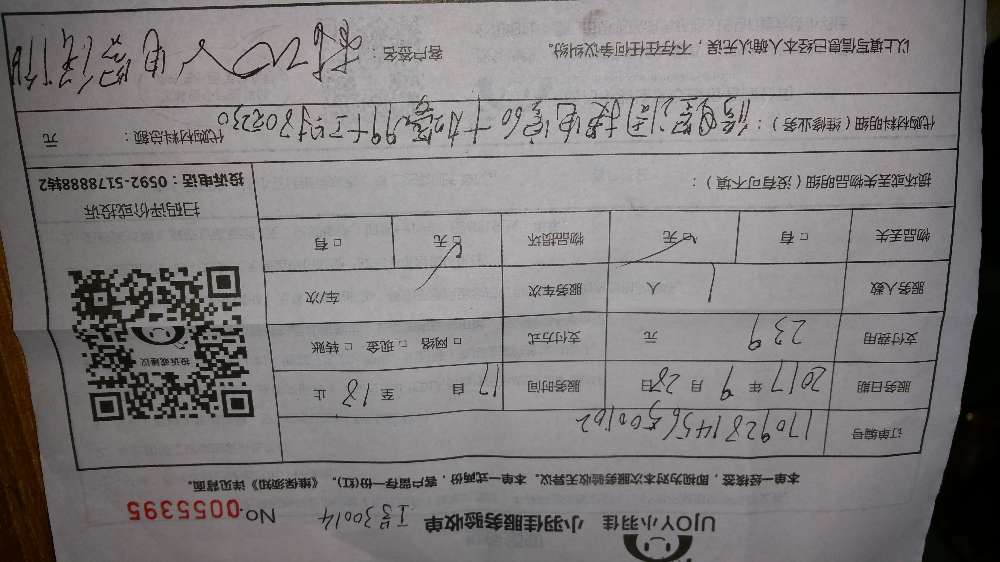 UJOY小羽佳 小羽佳服务验收单 工号30014 No.0055395
本单一经核签,即视为对本次服务验收无异议。本单一式两份,客户留存一份(红)。《维保须知》详见背面。
订单编号 170928145650102
服务日期 2017 年 9 月 28 日 服务时间 17 自 至 18 止
支付费用 239 元 支付方式 □ 网络 □ 现金 □ 转账
服务人数 1 人 服务车次 车/次
物品丢失 □ 有 □ 无 物品损坏 □ 无 □ 有
损坏或丢失物品明细(没有可不填):
投诉或建议
扫码评价或投诉
投诉电话:0592-5178888转2
代购材料明细(维修业务): 代购材料总额: 元
以上填写信息已经本人确认无误,不存在任何争议纠纷。 客户签名: